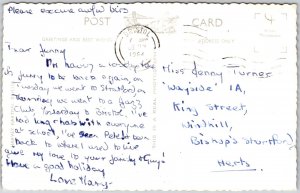 Please excuse awful biro
POST CARD
BRISTOL
1964
4
Dear Jenny
I'm having a lovely time
it's funny to be back again, on
Tuesday we went to Stratford, on
Thursday we went to a
Club. Yesterday to Bristol. I've
had long chats with everyone
at school, I've seen Peter
back to where I used to live
give my love to your family & Guy!
Have a good holiday
Love Mary.
Miss Jenny Turner
"Wayside" 1A,
King Street,
Windhill,
Bishop's Stortford
Herts.